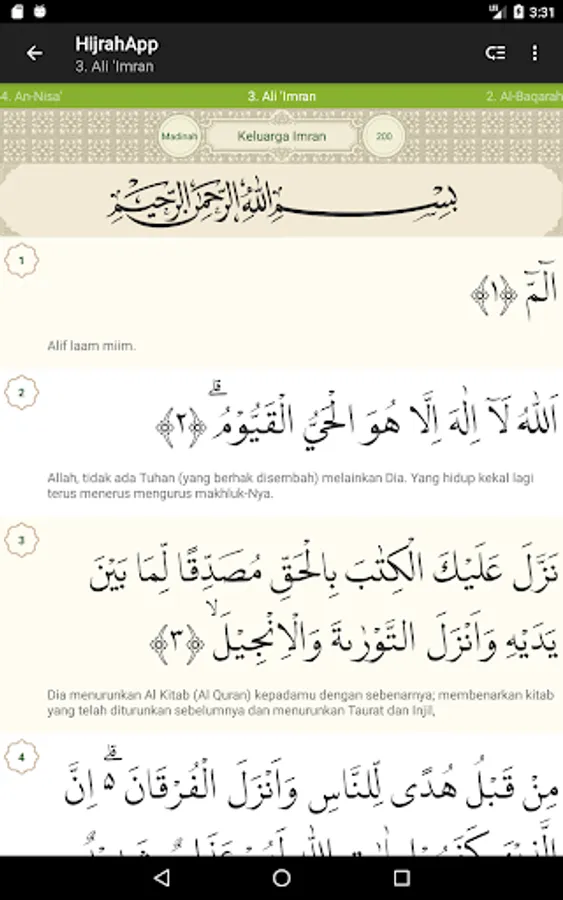 3:31
HijrahApp
3. Ali 'Imran
4. An-Nisa' 3. Ali 'Imran 2. Al-Baqarah
Madinah Keluarga Imran 200
بِسْمِ اللهِ الرَّحْمٰنِ الرَّحِيْمِ
1
الٓمّٓ ﴿١﴾
Alif laam miim.
2
اَللّٰهُ لَآ اِلٰهَ اِلَّا هُوَ الْحَيُّ الْقَيُّوْمُ ۗ ﴿٢﴾
Allah, tidak ada Tuhan (yang berhak disembah) melainkan Dia. Yang hidup kekal lagi
terus menerus mengurus makhluk-Nya.
3
نَزَّلَ عَلَيْكَ الْكِتٰبَ بِالْحَقِّ مُصَدِّقًا لِّمَا بَيْنَ
يَدَيْهِ وَاَنْزَلَ التَّوْرٰىةَ وَالْاِنْجِيْلَ ۙ ﴿٣﴾
Dia menurunkan Al Kitab (Al Quran) kepadamu dengan sebenarnya; membenarkan kitab
yang telah diturunkan sebelumnya dan menurunkan Taurat dan Injil,
4
مِنْ قَبْلُ هُدًى لِّلنَّاسِ وَاَنْزَلَ الْفُرْقَانَ ەۗ اِنَّ